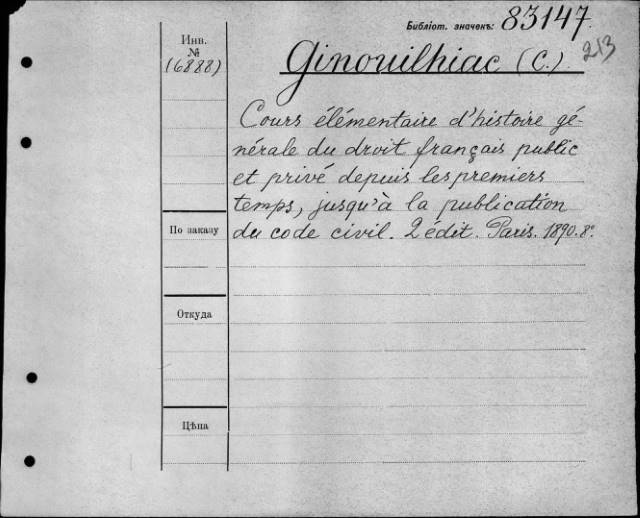 Библіот. значекъ: 83147.
213
Инв.
№
(6888)
Ginouilhiac (C.)
Cours élémentaire d'histoire gé-
nérale du droit français public
et privé depuis les premiers
temps, jusqu'à la publication
du code civil. 2 édit. Paris. 1890. 8º.
По заказу
Откуда
Цѣна